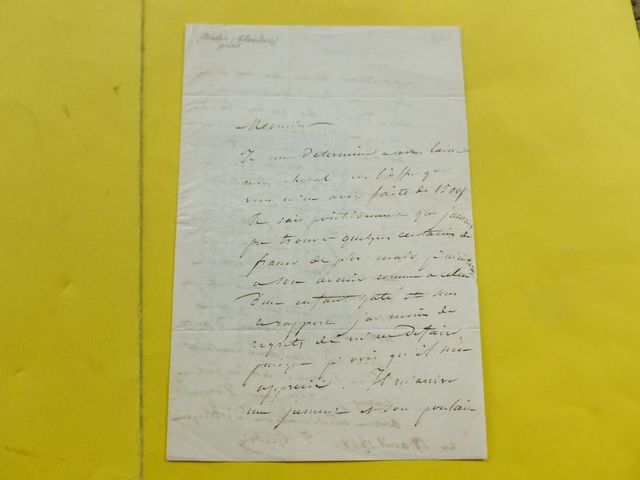 Monsieur
Je me determine a vous laisser
mon cheval pour l'offre que
vous m'en avez faite de 1500f
Je sais positivement que j'aurais
pu trouver quelques centaines de
francs de plus mais
a son avenir comme a celui
d'un enfant gaté et sous
ce rapport j'ai moins de
regrets de m'en defaire
puisque je vois qu'il sera
apprecié. Il m'arrive
une jument et son poulain